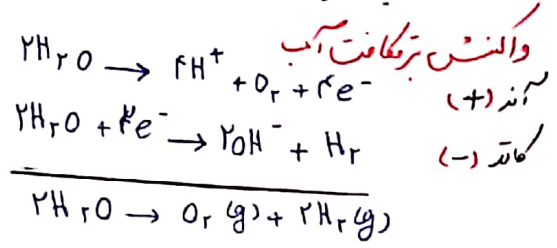 واکنش برقکافت آب
۲H₂O → ۴H⁺ + O₂ + ۴e⁻ آند (+)
۲H₂O + ۲e⁻ → ۲OH⁻ + H₂ کاتد (-)
۲H₂O → O₂(g) + ۲H₂(g)